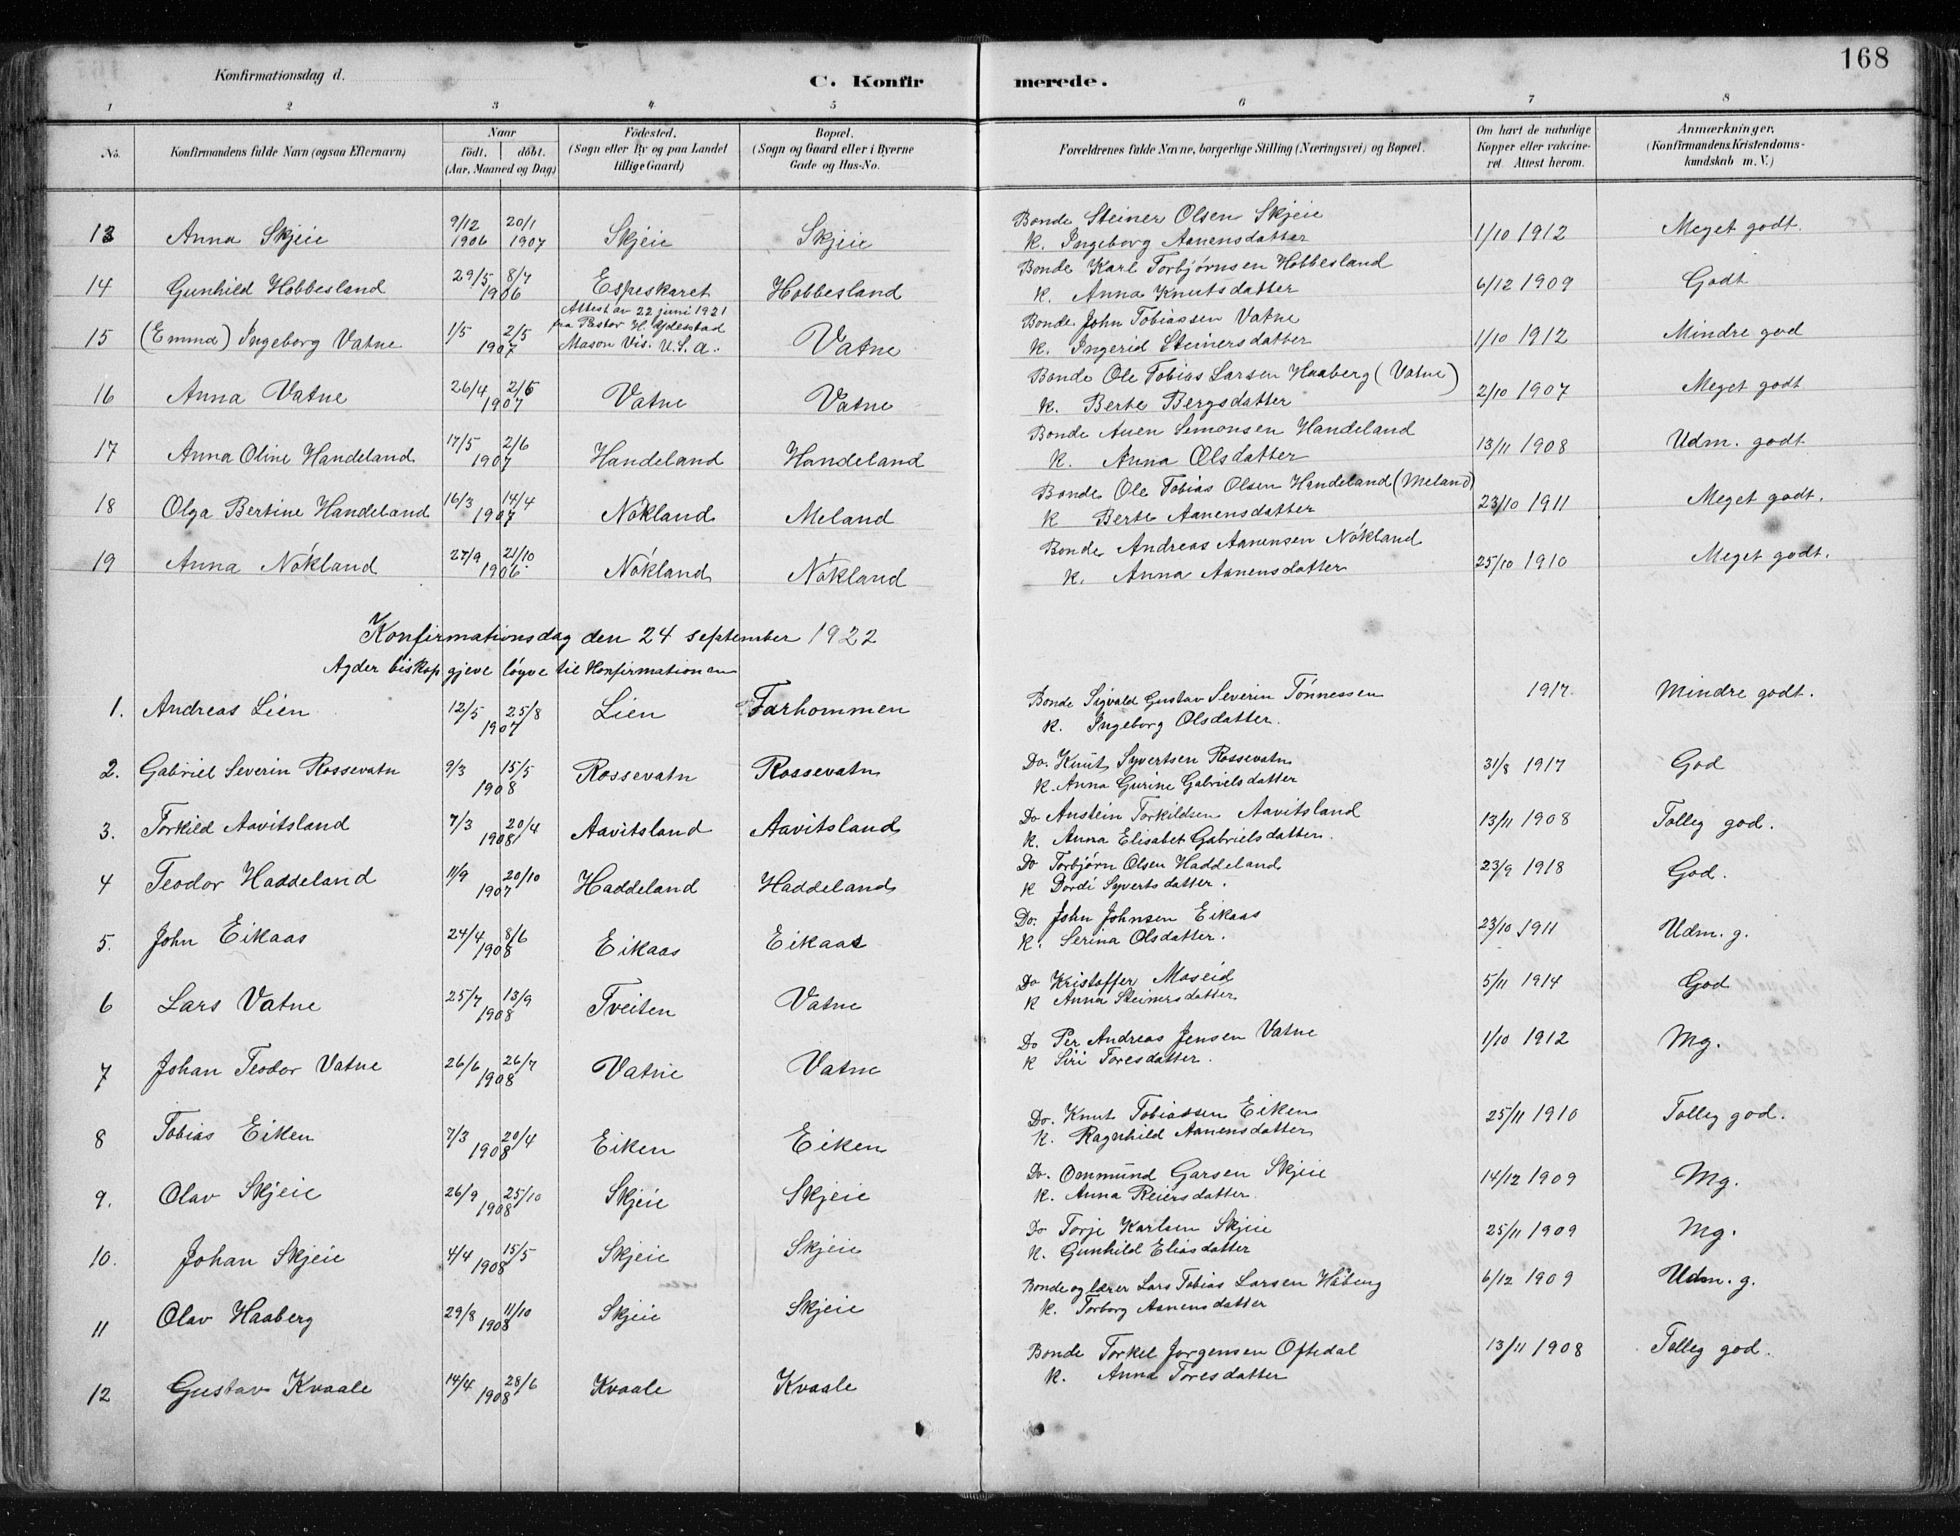 168
Konfirmationsdag d.
C. Konfirmerede.
1 2 3 4 5 6 7 8
No. Konfirmandens fulde Navn (ogsaa Efternavn) Naar födt. döbt. (Aar, Maaned og Dag) Födested. (Sogn eller By og paa Landet tillige Gaard) Bopæl. (Sogn og Gaard eller i Byerne Gade og Hus-No. Forældrenes fulde Navne, borgerlige Stilling (Næringsvei) og Bopæl. Om havt de naturlige Kopper eller vakcineret. Attest herom. Anmærkninger. (Konfirmandens Kristendomskundskab m. V.)
13 Anna Skjeie 9/12 1906 20/1 1907 Skjeie Skjeie Bonde Steiner Olsen Skjeie 1/10 1912 Meget godt.
K. Ingeborg Aanensdatter
14 Gunhild Hobbesland 29/5 8/7 1906 Espeskaret Hobbesland Bonde Karl Torbjørnsen Hobbesland 6/12 1909 Godt
K. Anna Knutsdatter
Attest av 22 juni 1921
fra Pastor H.
15 (Emma) Ingeborg Vatne 1/5 2/5 1907 Mason Vis. U.S.a. Vatne Bonde John Tobiassen Vatne 1/10 1912 Mindre god
K. Ingerid Steinersdatter
16 Anna Vatne 26/4 2/6 1907 Vatne Vatne Bonde Ole Tobias Larsen Haaberg (Vatne) 2/10 1907 Meget godt
K. Berte Bergsdatter
17 Anna Oline Handeland 17/5 2/6 1907 Handeland Handeland Bonde Anen Semonsen Handeland 13/11 1908 Udm. godt
K. Anna Olsdatter
18 Olga Bertine Handeland 16/3 14/4 1907 Nökland Meland Bonde Ole Tobias Olsen Handeland (Meland) 23/10 1911 Meget godt.
K Berte Aanensdatter
19 Anna Nökland 27/9 21/10 1906. Nökland Nökland Bonde Andreas Aanensen Nökland 25/10 1910 Meget godt.
K. Anna Aanensdatter
Konfirmationsdag den 24 september 1922
Agder biskop gjeve løyve til Konfirmationen
1. Andreas Lien 12/5 25/8 1907 Lien Farhommen Bonde Sigvald Gustav Severin Tønnessen 1917 Mindre godt.
K. Ingeborg Olsdatter.
2. Gabriel Severin Rossevatn 9/3 15/5 1908 Rossevatn Rossevatn Do. Knut Syvertsen Rossevatn 31/8 1917 God
K. Anna Gurine Gabrielsdatter
3. Torkild Aavitsland 7/3 20/4 1908 Aavitsland Aavitsland Do Anstein Torkildsen Aavitsland 13/11 1908 Tolleg god.
K. Anna Elisabet Gabrielsdatter.
4 Teodor Haddeland 11/9 20/10 1907 Haddeland Haddeland Do Torbjørn Olsen Haddeland 23/9 1918 God.
K Dordi Syvertsdatter.
5. John Eikaas 24/4 8/6 1908 Eikaas Eikaas Do. John Johnsen Eikaas 23/10 1911 Udm. g.
K. Serina Olsdatter.
6 Lars Vatne 25/7 13/9 1908 Tveiten Vatne Do Kristoffer Moseid 5/11 1914 God
K Anna Steinersdatter
7 Johan Teodor Vatne 26/6 26/7 1908 Vatne Vatne Do Per Andreas Jensen Vatne 1/10 1912 Mg.
K Siri Toresdatter.
8 Tobias Eiken 7/3 20/4 1908 Eiken Eiken Do. Knut Tobiassen Eiken 25/11 1910 Tolleg god.
K. Ragnhild Aanensdatter
9. Olav Skjeie 26/9 25/10 1908 Skjeie Skjeie Do. Ommund Garsen Skjeie 14/12 1909 Mg.
K. Anna Reiersdatter.
10. Johan Skjeie 4/4 15/5 1908 Skjeie Skjeie Do Torje Karlsen Skjeie 25/11 1909 Mg.
K. Gunhild Eliasdatter
11 Olav Haaberg 29/8 11/10 1908 Skjeie Skjeie Bonde og lærer Lars Tobias Larsen Håberg 6/12 1909 Udm. g.
K. Torborg Aanensdatter
12 Gustav Kvaale 14/4 28/6 1908 Kvaale Kvaale Bonde Torkel Jorgensen Oftedal 13/11 1908 Tolleg god.
K. Anna Toresdatter